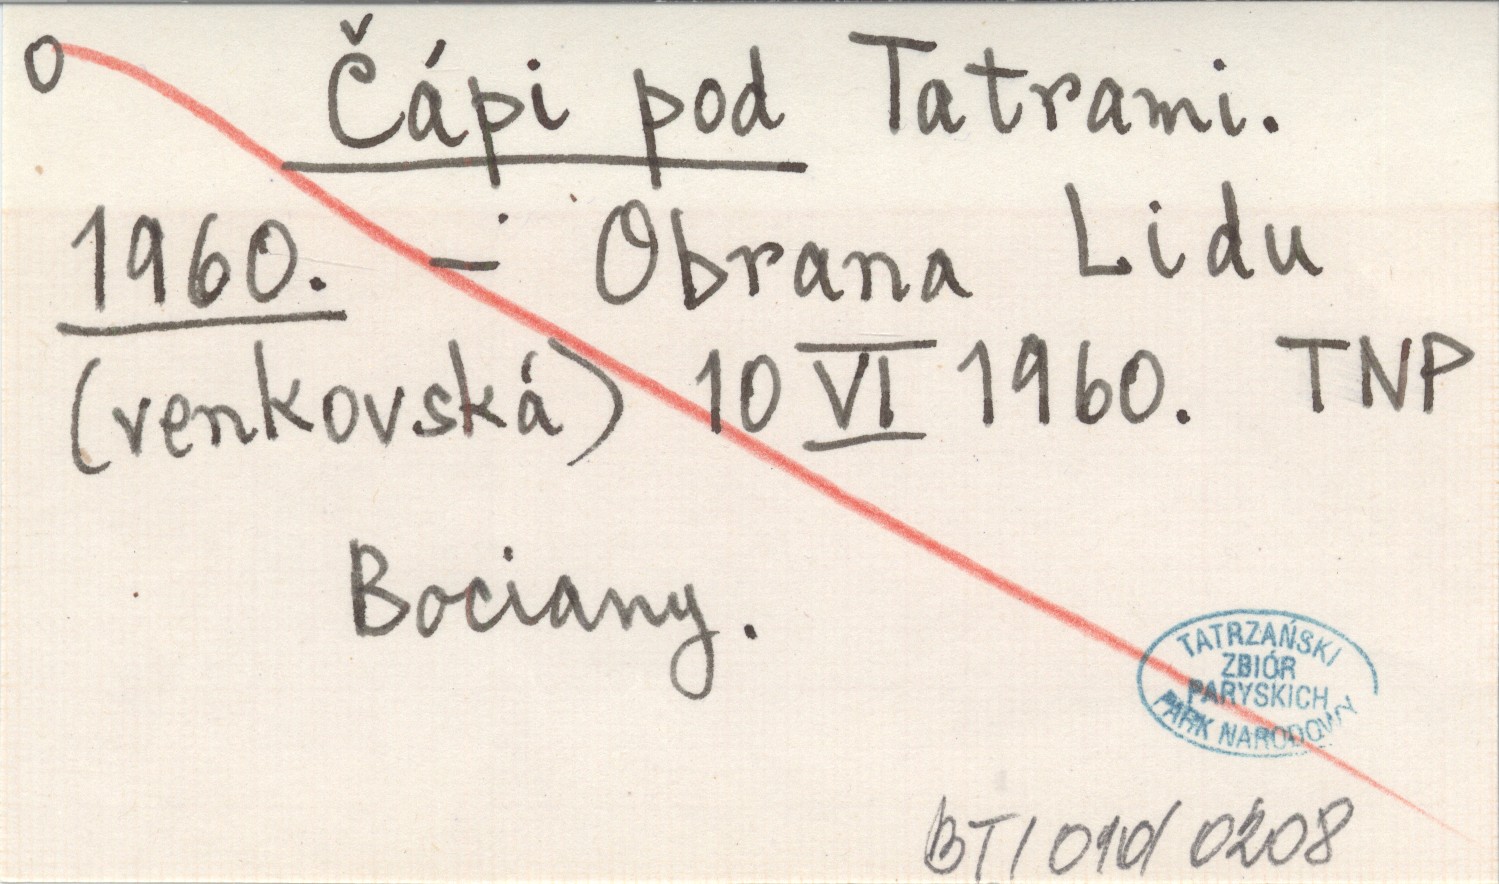 o Čápi pod Tatrami.
1960. – Obrana Lidu
(venkovská) 10 VI 1960. TNP
Bociany.
TATRZAŃSKI
ZBIÓR
PARYSKICH
PARK NARODOWY
BT/010/0208